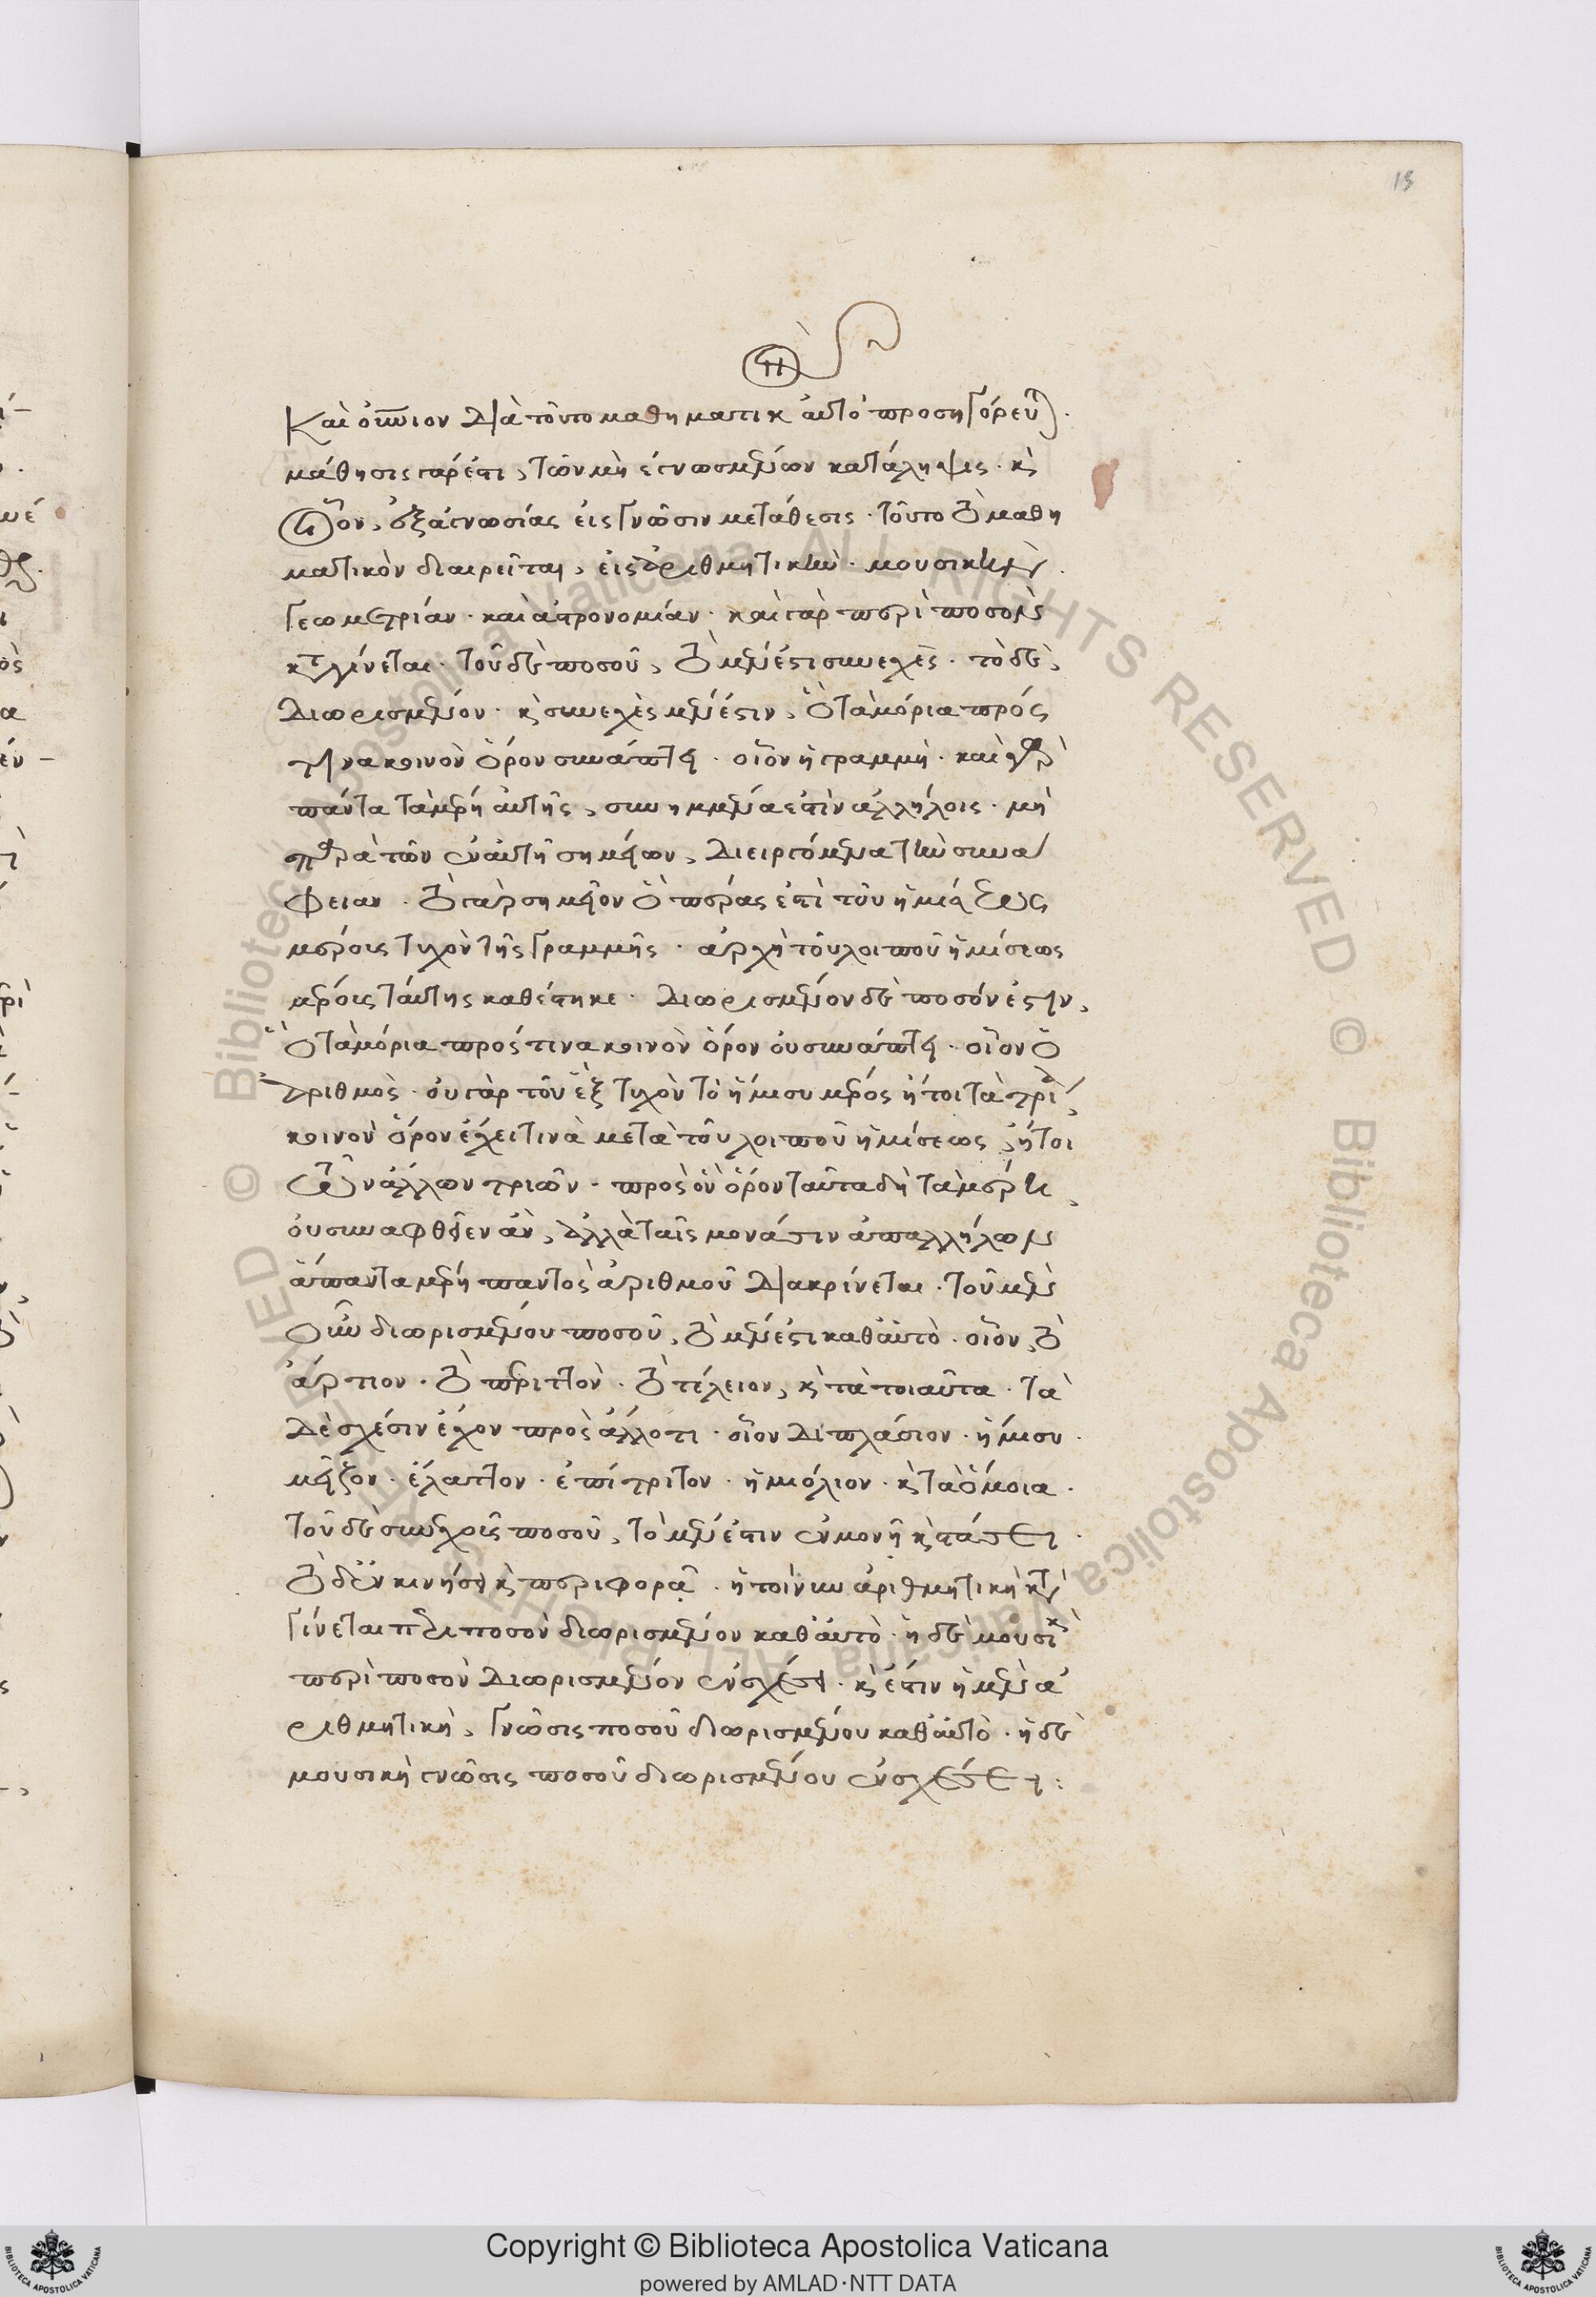 15
καὶ οἰκεῖον διὰ τοῦτο μαθηματικὸν αὐτὸ προσηγόρευσαν.
μάθησις γάρ ἐστι, τῶν μὴ ἐγνωσμένων κατάληψις · καὶ
οἷον, ἐξ ἀγνωσίας εἰς γνῶσιν μετάθεσις · τοῦτο τὸ μαθη
ματικὸν διαιρεῖται, εἰς ἀριθμητικὴν · μουσικὴν ·
γεωμετρίαν · καὶ ἀστρονομίαν · καὶ γὰρ περὶ ποσοῦ
καταγίνεται · τοῦ δὲ ποσοῦ, τὸ μέν ἐστι συνεχὲς · τὸ δὲ,
διωρισμένον · καὶ συνεχὲς μέν ἐστιν, ὃ τὰ μόρια πρός
τινα κοινὸν ὅρον συνάπτει · οἷον ἡ γραμμὴ · καὶ γὰρ
πάντα τὰ μέρη αὐτῆς, συνημμένα ἐστὶν ἀλλήλοις · μὴ
παρὰ τῶν ἐν αὐτῇ σημείων, διειργόμενα τὴν συνά
φειαν · τὸ γὰρ σημεῖον ὃ πέρας ἐστὶ τοῦ ἡμίσεως
μέρους τυχὸν τῆς γραμμῆς · ἀρχὴ τοῦ λοιποῦ ἡμίσεως
μέρους ταύτης καθέστηκε · διωρισμένον δὲ ποσόν ἐστιν,
ὃ τὰ μόρια πρός τινα κοινὸν ὅρον οὐ συνάπτει · οἷον ὁ
ἀριθμὸς · οὐ γὰρ τοῦ ἓξ τυχὸν τὸ ἥμισυ μέρος ἤτοι τὰ τρία,
κοινὸν ὅρον ἔχει τινὰ μετὰ τοῦ λοιποῦ ἡμίσεως, ἤτοι
τῶν ἄλλων τριῶν · πρὸς ὃν ὅρον ταῦτα δὴ τὰ μέρη,
οὐ συναφθεῖεν ἂν, ἀλλὰ ταῖς μονάσιν ἀπ' ἀλλήλων
ἅπαντα μέρη παντὸς ἀριθμοῦ διακρίνεται · τοῦ μὲν
οὖν διωρισμένου ποσοῦ, τὸ μέν ἐστι καθ' αὑτὸ · οἷον, τὸ
ἄρτιον · τὸ περιττὸν · τὸ τέλειον, καὶ τὰ τοιαῦτα · τὰ
δὲ σχέσιν ἔχον πρὸς ἄλλό τι · οἷον διπλάσιον · ἥμισυ ·
μεῖζον · ἔλαττον · ἐπίτριτον · ἡμιόλιον · καὶ τὰ ὅμοια ·
τοῦ δὲ συνεχοῦς ποσοῦ, τὸ μέν ἐστιν ἐν μονῇ καὶ στάσει ·
τὸ δ' ἐν κινήσει καὶ περιφορᾷ · ἡ τοίνυν ἀριθμητικὴ κατα
γίνεται περὶ ποσὸν διωρισμένον καθ' αὑτὸ · ἡ δὲ μουσικὴ
περὶ ποσὸν διωρισμένον ἐν σχέσει · καὶ ἔστιν ἡ μὲν ἀ
ριθμητικὴ, γνῶσις ποσοῦ διωρισμένου καθ' αὑτὸ · ἡ δὲ
μουσικὴ γνῶσις ποσοῦ διωρισμένου ἐν σχέσει :
Copyright © Biblioteca Apostolica Vaticana
powered by AMLAD·NTT DATA